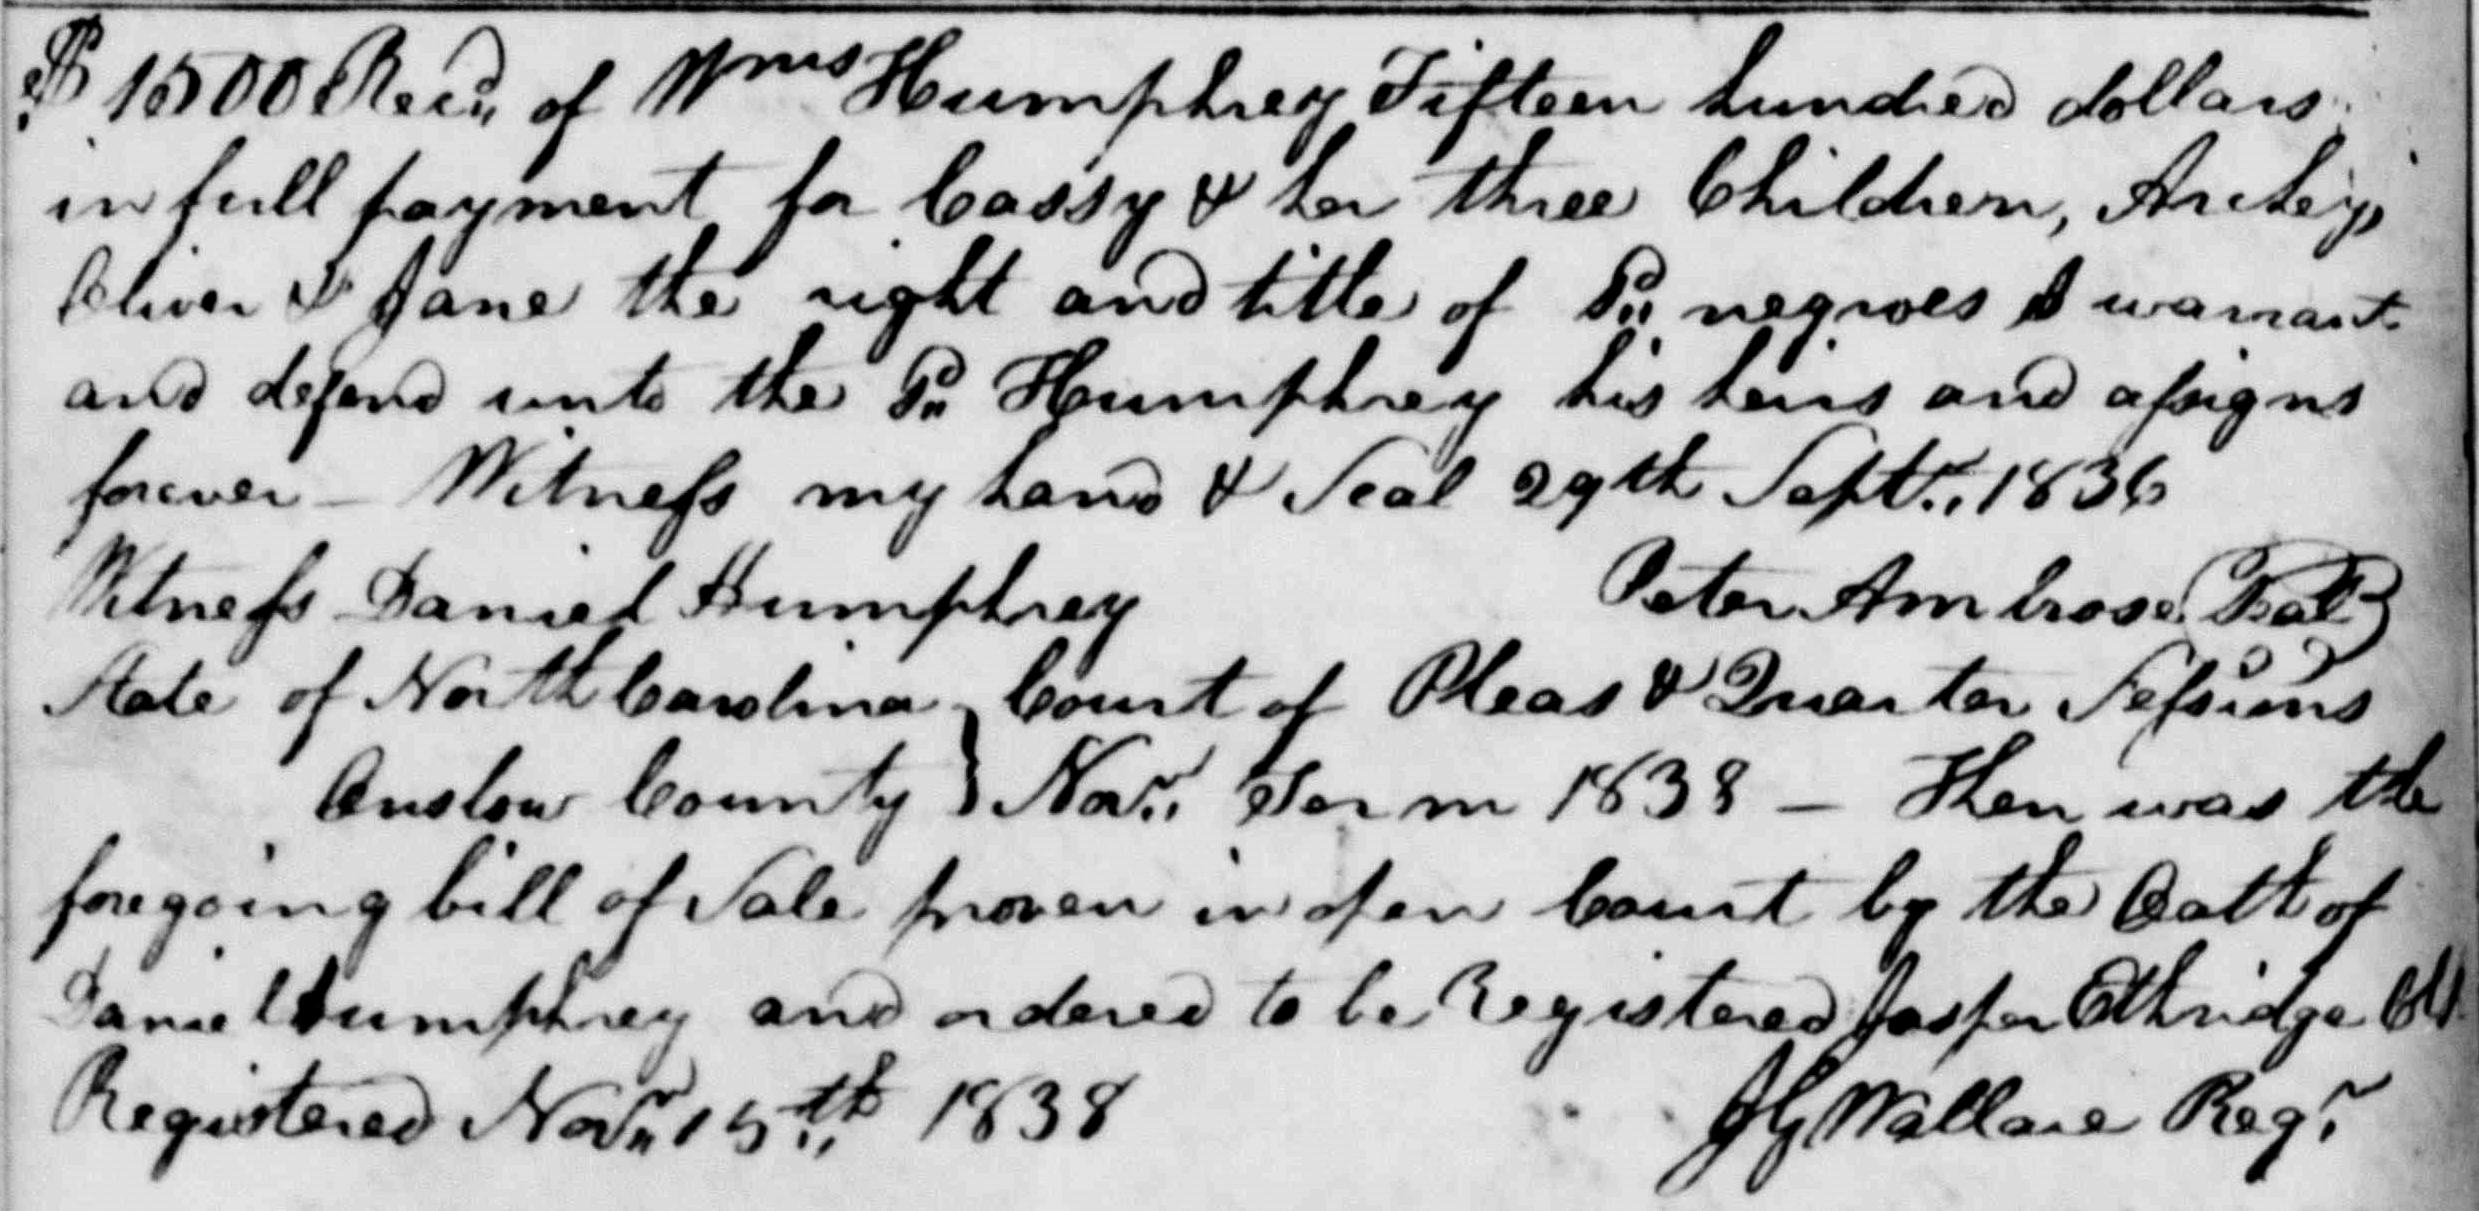 $1500 Recd. of Wms Humphrey Fifteen hundred dollars
in full payment for Cassy & her three Children, Archey,
Oliver & Jane the right and title of Sd. negroes I warrant
and defend unto the Sd. Humphrey his heirs and assigns
forever – Witness my hand & Seal 29th Septr. 1836
Witness Daniel Humphrey Peter Ambrose (Seal)
State of North Carolina } Court of Pleas & Quarter Sessions
Onslow County } Novr. Term 1838 – Then was the
foregoing bill of Sale proven in open Court by the Oath of
Daniel Humphrey and ordered to be Registered Jasper Ethridge Clk
Registered Novr. 15th. 1838 JG Wallace Regr.